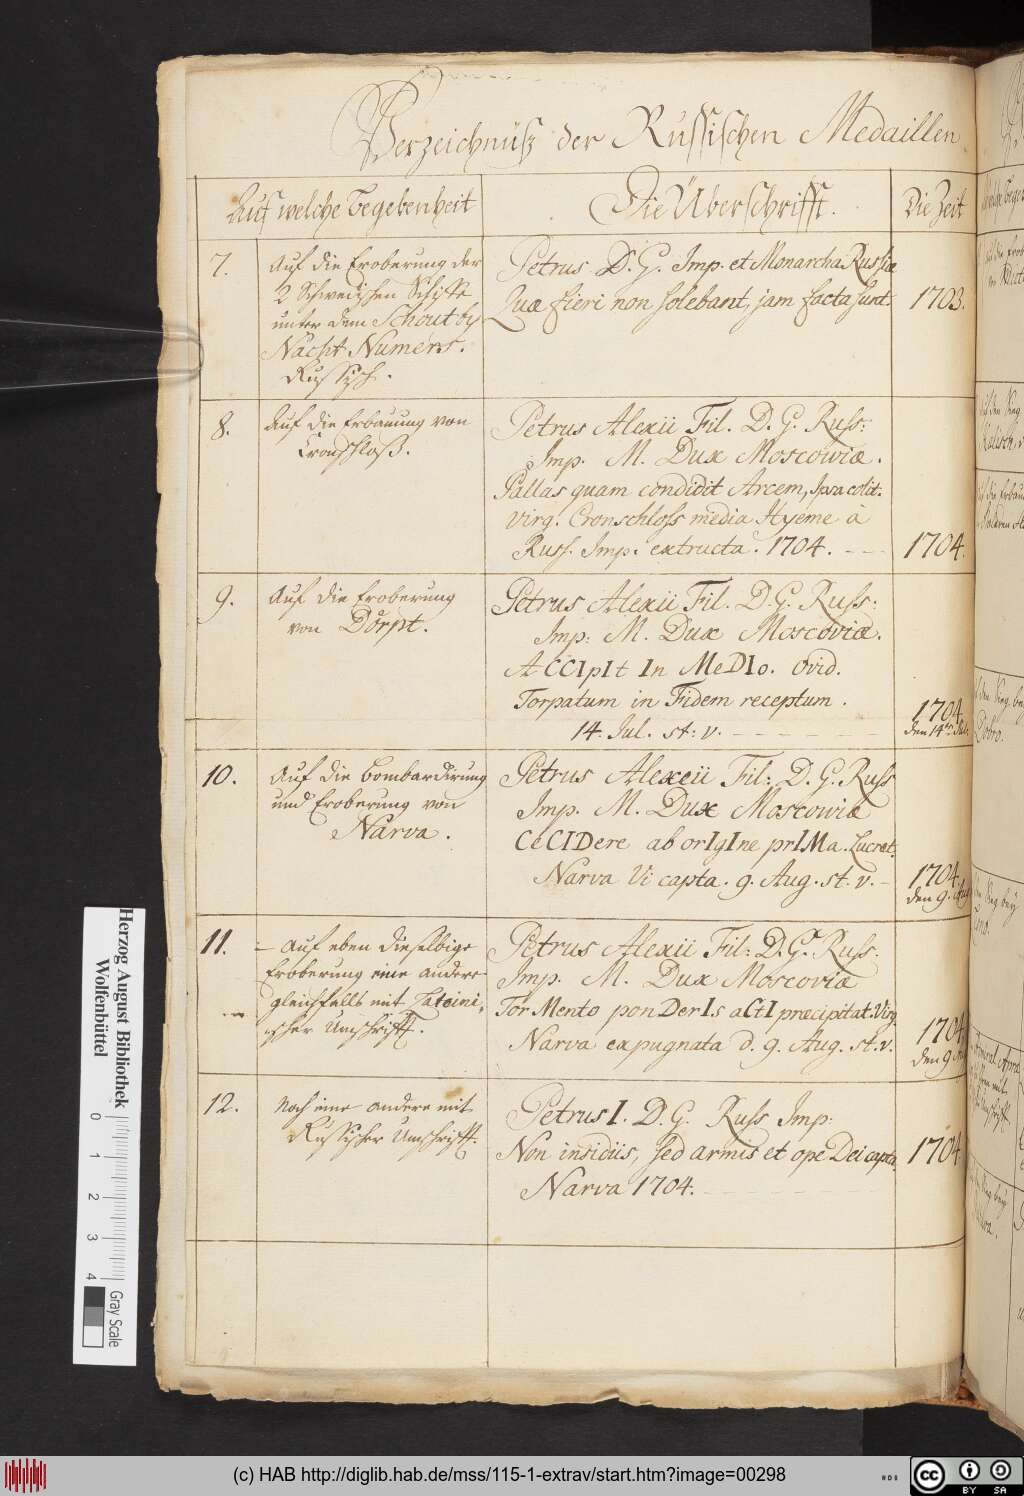 Verzeichnüß der Russischen Medaillen
Auf welche Begebenheit
Die Überschrifft.
Die Zeit
7.
Auf die Eroberung der
2 Schwedischen Schiffe
unter dem Schout by
Nacht Numers.
Russisch.
Petrus D. G. Imp. et Monarcha Russiæ
Quæ fieri non solebant, jam facta sunt.
1703.
8.
Auf die Erbauung von
Cronschloß.
Petrus Alexii Fil. D. G. Russ:
Imp. M. Dux Moscowiæ.
Pallas quam condidit Arcem, Ipsa colit.
Virg. Cronschloss media Hyeme à
Russ. Imp. extructa. 1704.
1704.
9.
Auf die Eroberung
von Dörpt.
Petrus Alexii Fil. D. G. Russ:
Imp: M. Dux Moscoviæ.
ACCIpIt In MeDIo. Ovid.
Torpatum in Fidem receptum.
14. Jul. st: v.
1704
den 14ten Jul.
10.
Auf die Bombardirung
und Eroberung von
Narva.
Petrus Alexeii Fil: D. G. Russ
Imp. M. Dux Moscowiæ
CeCIDere ab orIgIne prIMa. Lucret.
Narva Vi capta. 9. Aug. st. v.
1704
den 9. Aug
11.
– Auf eben dieselbige
Eroberung eine andere
gleichfalls mit Lateini-
scher Umschrifft.
Petrus Alexii Fil: D. G. Russ.
Imp. M. Dux Moscoviæ
TorMento ponDerIs aCtI præcipitat. Virg.
Narva expugnata d. 9. Aug. st. v.
1704
den 9
12.
Noch eine andere mit
Russischer Umschrifft.
Petrus I. D. G. Russ Imp:
Non insidiis, sed armis et ope Dei capta
Narva 1704.
1704
Herzog August Bibliothek
Wolfenbüttel
0 1 2 3 4
Gray Scale
(c) HAB http://diglib.hab.de/mss/115-1-extrav/start.htm?image=00298
cc
BY SA